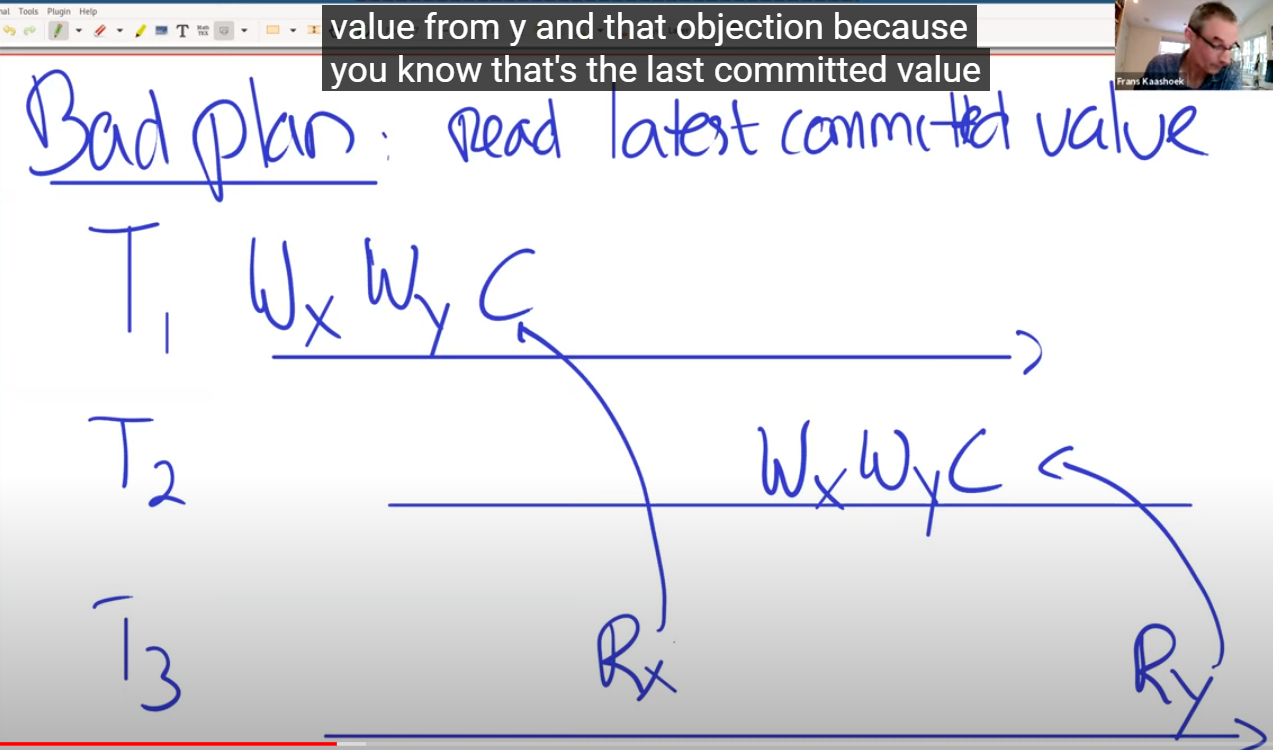 nal Tools Plugin Help
value from y and that objection because
you know that's the last committed value
Frans Kaashoek
Bad plan: Read latest committed value
T1 Wx Wy C
T2 Wx Wy C
T3 Rx Ry